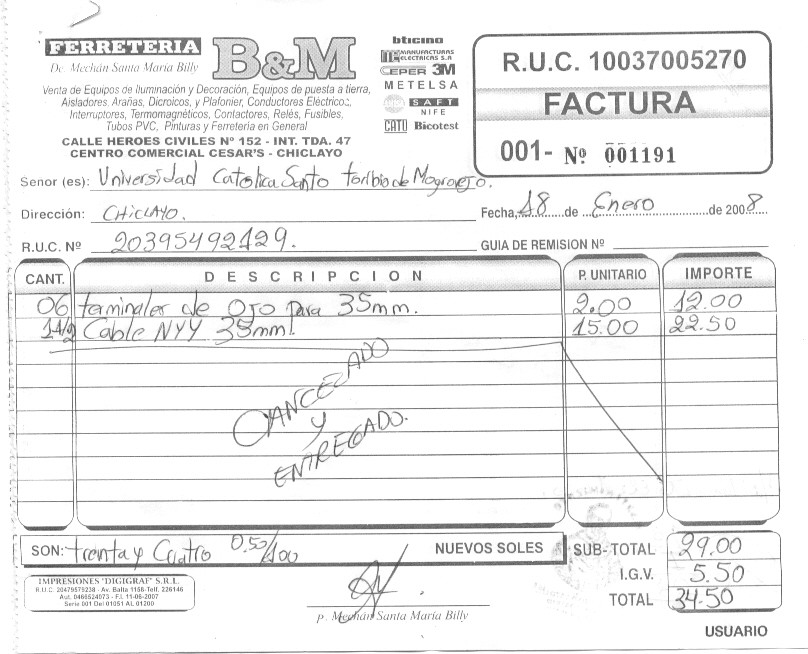 FERRETERIA B&M
De. Mechán Santa María Billy
Venta de Equipos de Iluminación y Decoración, Equipos de puesta a tierra,
Aisladores. Arañas, Dicroicos, y Plafonier, Conductores Eléctricos,
Interruptores, Termomagnéticos, Contactores, Relés, Fusibles,
Tubos PVC, Pinturas y Ferretería en General
CALLE HEROES CIVILES Nº 152 - INT. TDA. 47
CENTRO COMERCIAL CESAR'S - CHICLAYO
bticino
MANUFACTURAS ELECTRICAS S.A
CEPER 3M
METELSA
SAFT
NIFE
CATU Bicotest
R.U.C. 10037005270
FACTURA
001- Nº 001191
Senor (es): Universidad Catolica Santo toribio de Mogrovejo.
Dirección: CHICLAYO.
Fecha, 18 de Enero de 2008
R.U.C. Nº 20395492129.
GUIA DE REMISION Nº
CANT. DESCRIPCION P. UNITARIO IMPORTE
06 terminales de ojo para 35mm. 2.00 12.00
1 1/2 Cable NYY 35mm. 15.00 22.50
CANCELADO
y
ENTREGADO.
SON: treinta y Cuatro 0.50/100 NUEVOS SOLES
SUB-TOTAL 29.00
I.G.V. 5.50
TOTAL 34.50
IMPRESIONES "DIGIGRAF" S.R.L.
R.U.C. 20479579238 - Av. Balta 1158-Telf. 226146
Aut. 0466524073 - F.I. 11-06-2007
Serie 001 Del 01051 AL 01200
p. Mechán Santa María Billy
USUARIO